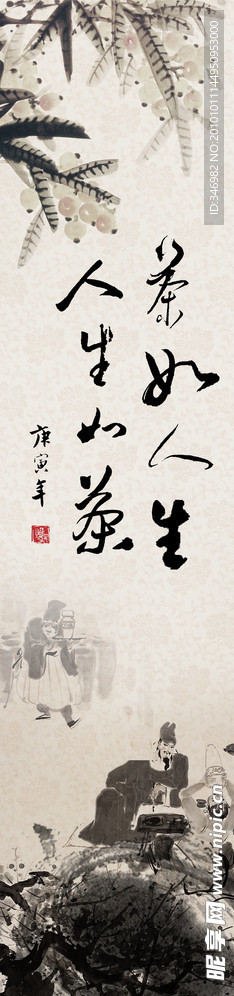 茶如人生
人生如茶
庚寅年
昵享网 www.nipic.cn
ID:346982 NO:20101011144950953000